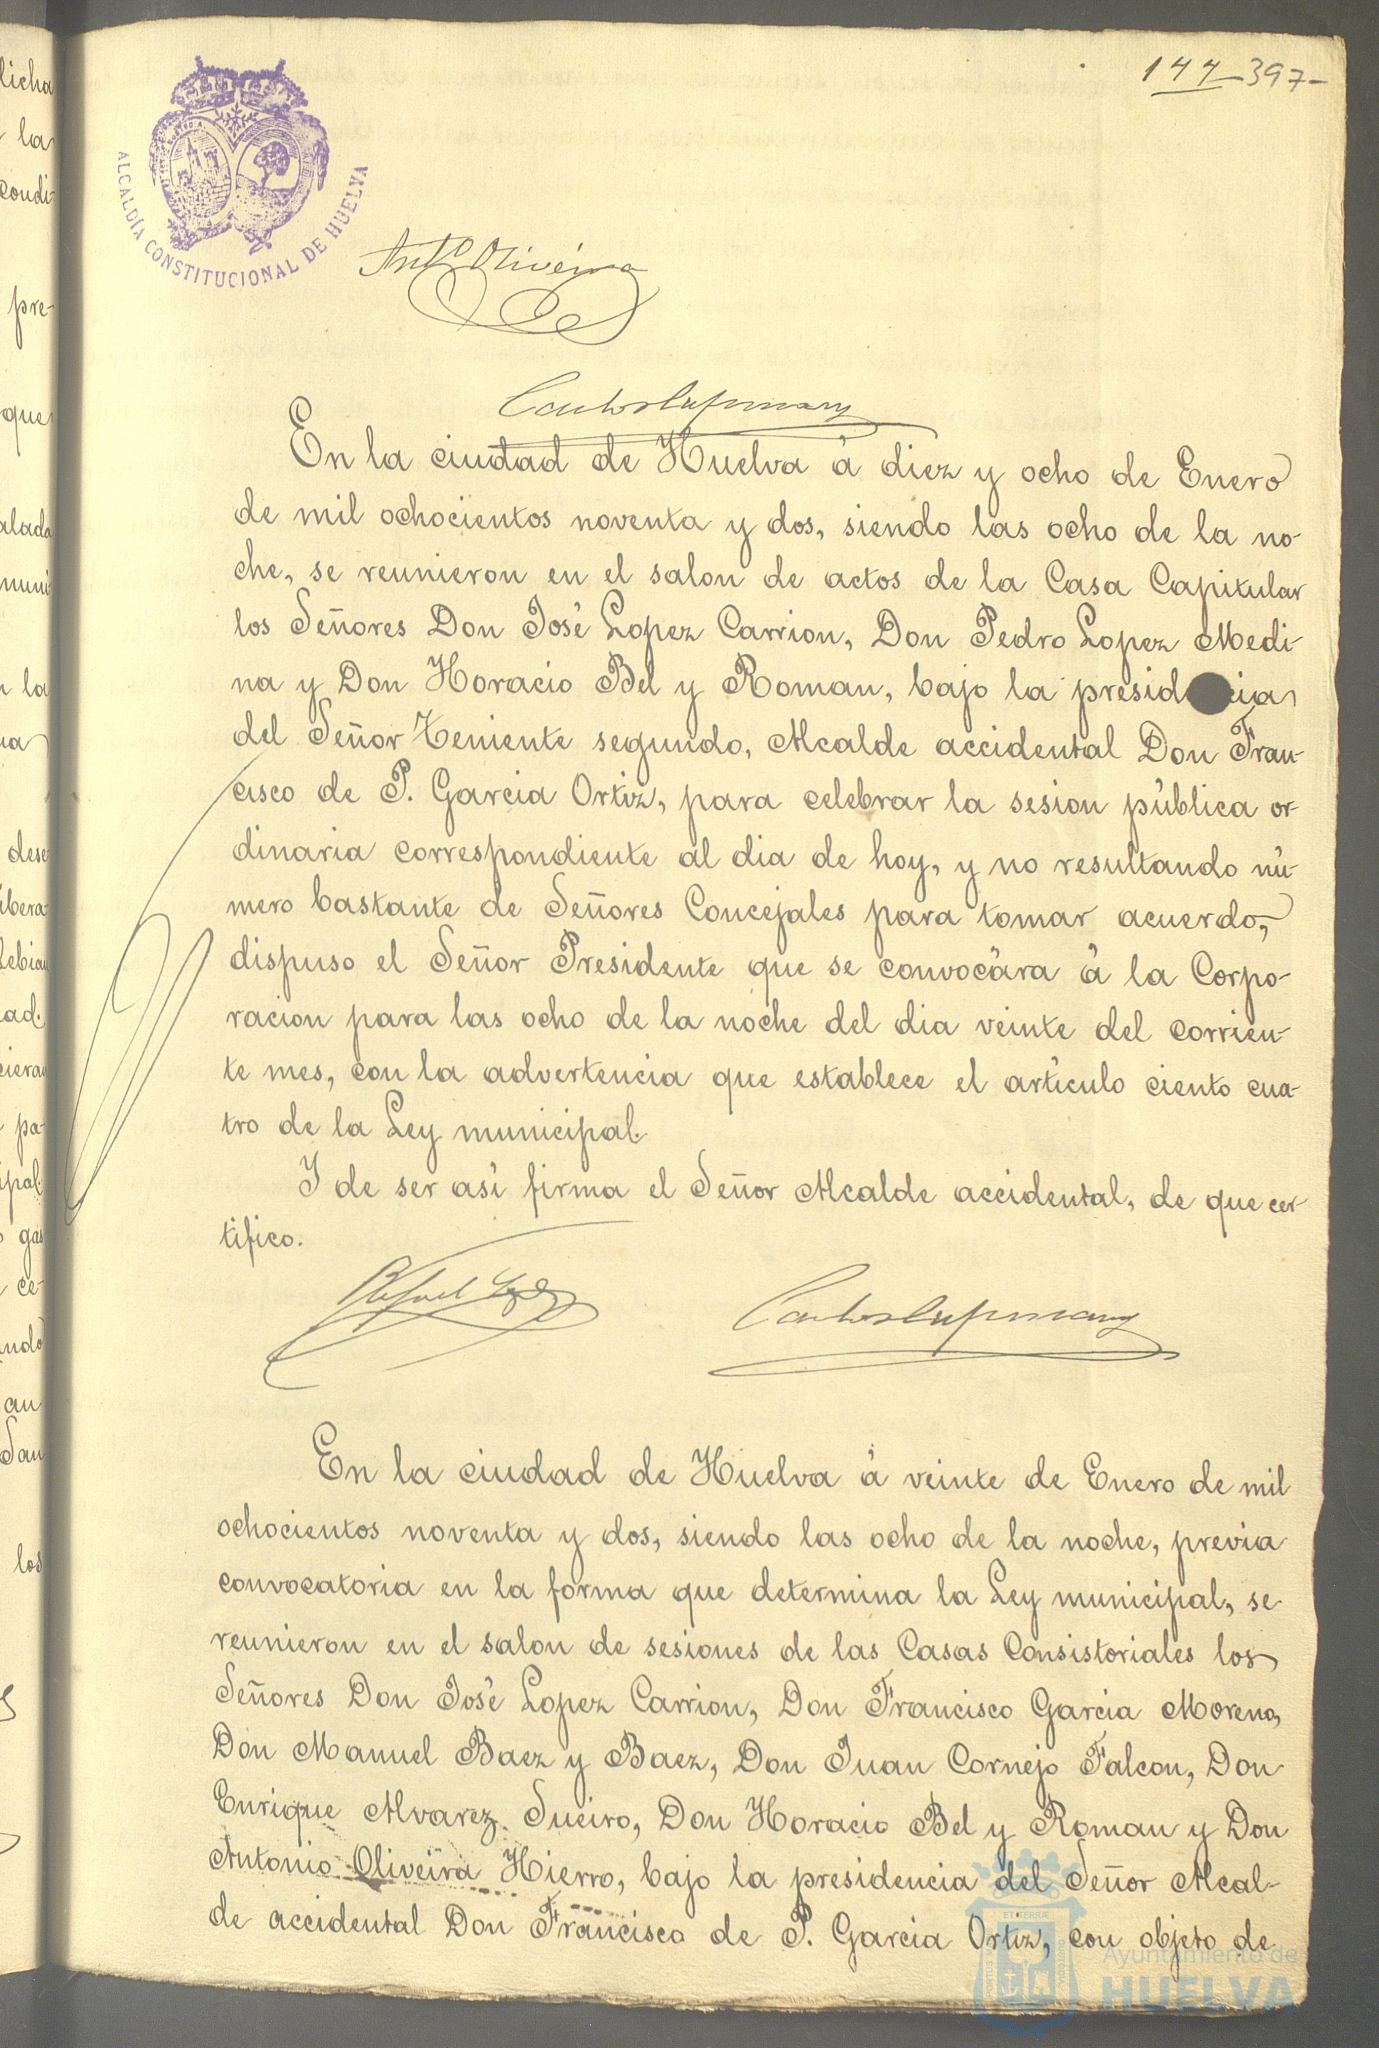 144 397-
ALCALDÍA CONSTITUCIONAL DE HUELVA
Antº Oliveira
En la ciudad de Huelva á diez y ocho de Enero
de mil ochocientos noventa y dos, siendo las ocho de la no-
che, se reunieron en el salon de actos de la Casa Capitular
los Señores Don José Lopez Carrion, Don Pedro Lopez Medi-
na y Don Horacio Bel y Roman, bajo la presid cia
del Señor Teniente segundo, Alcalde accidental Don Fran-
cisco de P. Garcia Ortiz, para celebrar la sesion pública or-
dinaria correspondiente al dia de hoy, y no resultando nú-
mero bastante de Señores Concejales para tomar acuerdo,
dispuso el Señor Presidente que se convocára á la Corpo-
racion para las ocho de la noche del dia veinte del corrien-
te mes, con la advertencia que establece el artículo ciento cua-
tro de la Ley municipal.
Y de ser así firma el Señor Alcalde accidental, de que cer-
tifico.
Rafael
En la ciudad de Huelva á veinte de Enero de mil
ochocientos noventa y dos, siendo las ocho de la noche, previa
convocatoria en la forma que determina la Ley municipal, se
reunieron en el salon de sesiones de las Casas Consistoriales los
Señores Don José Lopez Carrion, Don Francisco Garcia Moreno,
Don Manuel Baez y Baez, Don Juan Cornejo Falcon, Don
Enrique Alvarez Sueiro, Don Horacio Bel y Roman y Don
Antonio Oliveira Hierro, bajo la presidencia del Señor Alcal-
de accidental Don Francisco de P. Garcia Ortiz, con objeto de
Ayuntamiento de
HUELVA